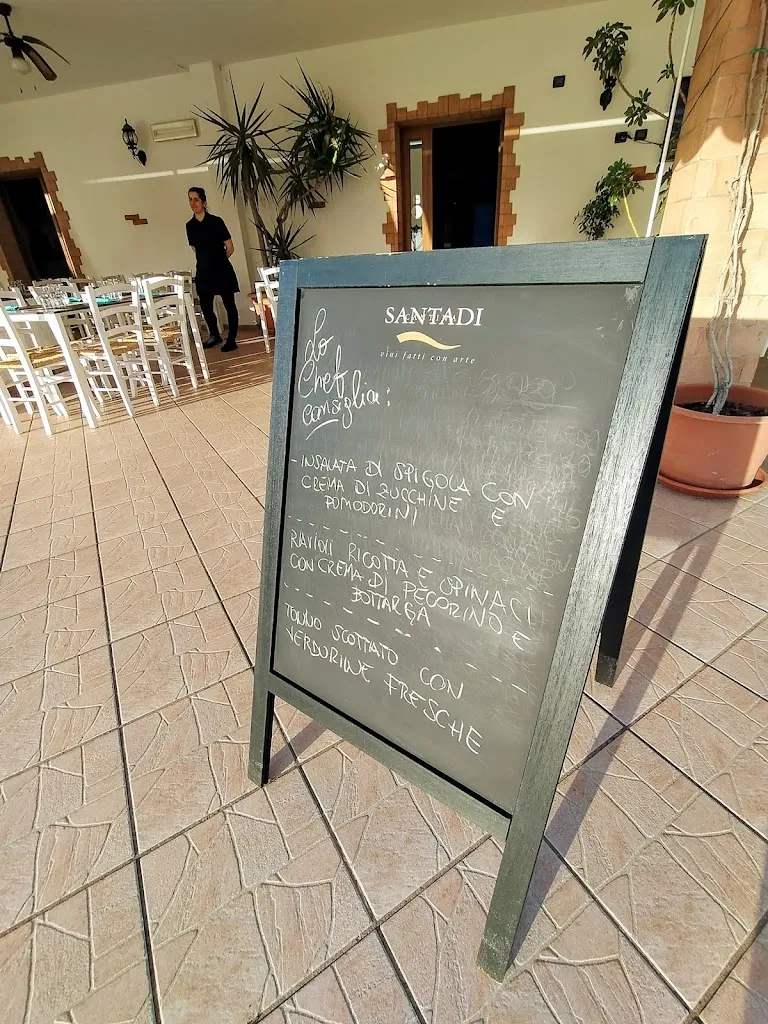 CANTINA
SANTADI
vini fatti con arte
Lo
Chef
consiglia:
- INSALATA DI SPIGOLA CON
CREMA DI ZUCCHINE E
POMODORINI
RAVIOLI RICOTTA E SPINACI
CON CREMA DI PECORINO E
BOTTARGA
TONNO SCOTTATO CON
VERDURINE FRESCHE